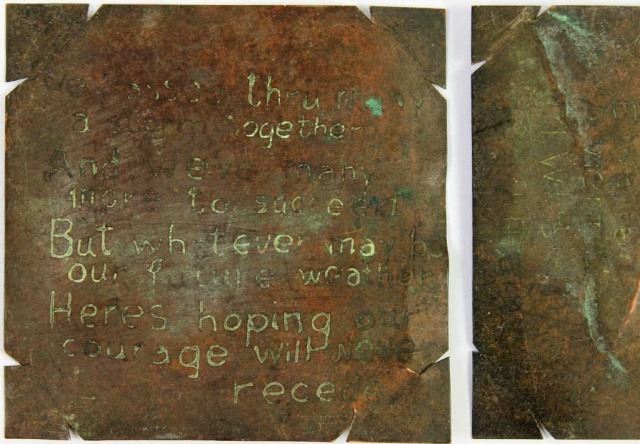 passed thru many
a storm together
And weave many
more to succeed
But whatever may be
our future weather
Heres hoping our
courage will never
recede